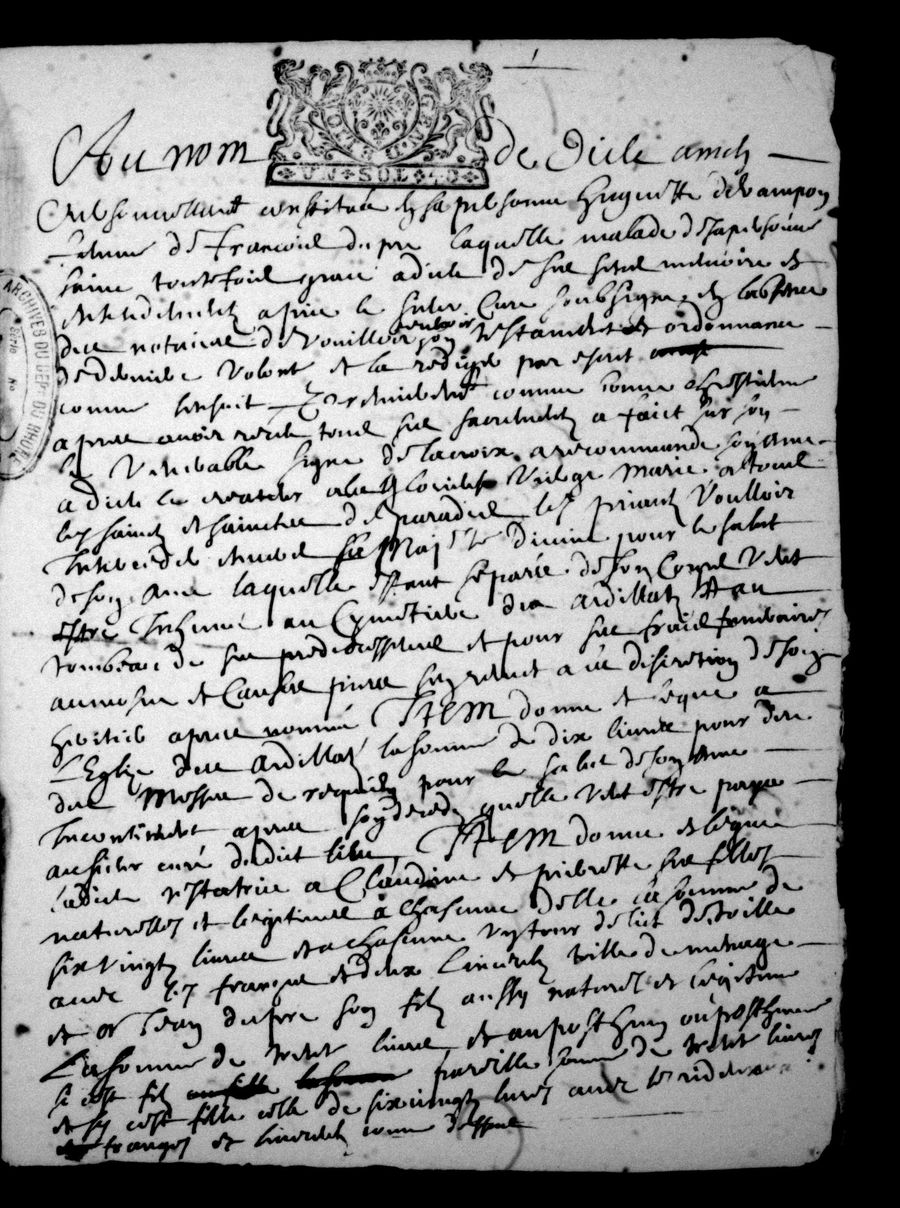 Au nom de Dieu amen
UN SOL
GENERALITE
personnellement constituée en sa personne Huguette
femme de francois dupre laquelle malade de sa personne
saine toutefois grace a dieu de ses sens memoire et
entendement a prie le sieur Cure soubsigne en labsence
des notaires de vouloir recevoir son testament et ordonnance
de derniere volonte et la rediger par escrit
comme sensuit premierement comme bonne chrestienne
apres avoir receu tous ses sacrements a faict sur soy
le venerable signe de la croix a recommandé son ame
a dieu le createur a la glorieuse Vierge Marie a tous
les saincts et sainctes de paradis les priant Voulloir
Interceder envers sa Majesté divine pour le salut
de son ame laquelle estant separée de son Corps veut
estre Inhumé au Cymetiere des Ardillatz et au
tombeau de ses predecesseurs et pour ses frais funeraires
aumosne et son remet a la discretion de son
heritier apres nommé ITEM donne et legue a
L'Eglise des Ardillatz la somme de dix livres pour dire
des Messes de requiem pour le salut de son ame
Incontinent apres son deceds quelle veut estre payee
au sieur curé dudict lieu, ITEM donne et legue
ladicte testatrice a Claudine et pierrette ses filles
naturelles et legitimes a chascune delle la somme de
six vingt livres et a chascune un tour de lict de toille
avec les franges et deux linceulx toille de menage
et a Jean dupre son filz aussy naturel et legitime
La somme de trente livres et au posthume ou posthume
si cest filz pareille somme de trente livres
et sy cest fille celle de six vingt livres avec les rideaux
franges et linceulx comme dessus
ARCHIVES DU DEPT DU RHONE
Serie No